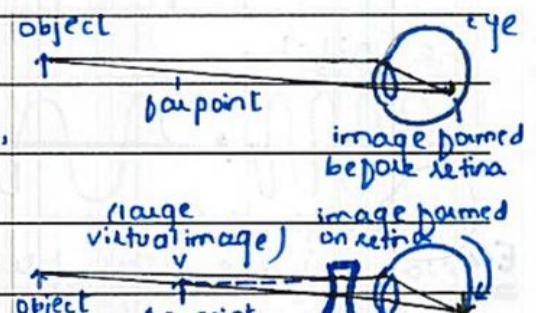 object
Eye
far point
image formed
before retina
(large
virtual image)
image formed
on retina
object
far point